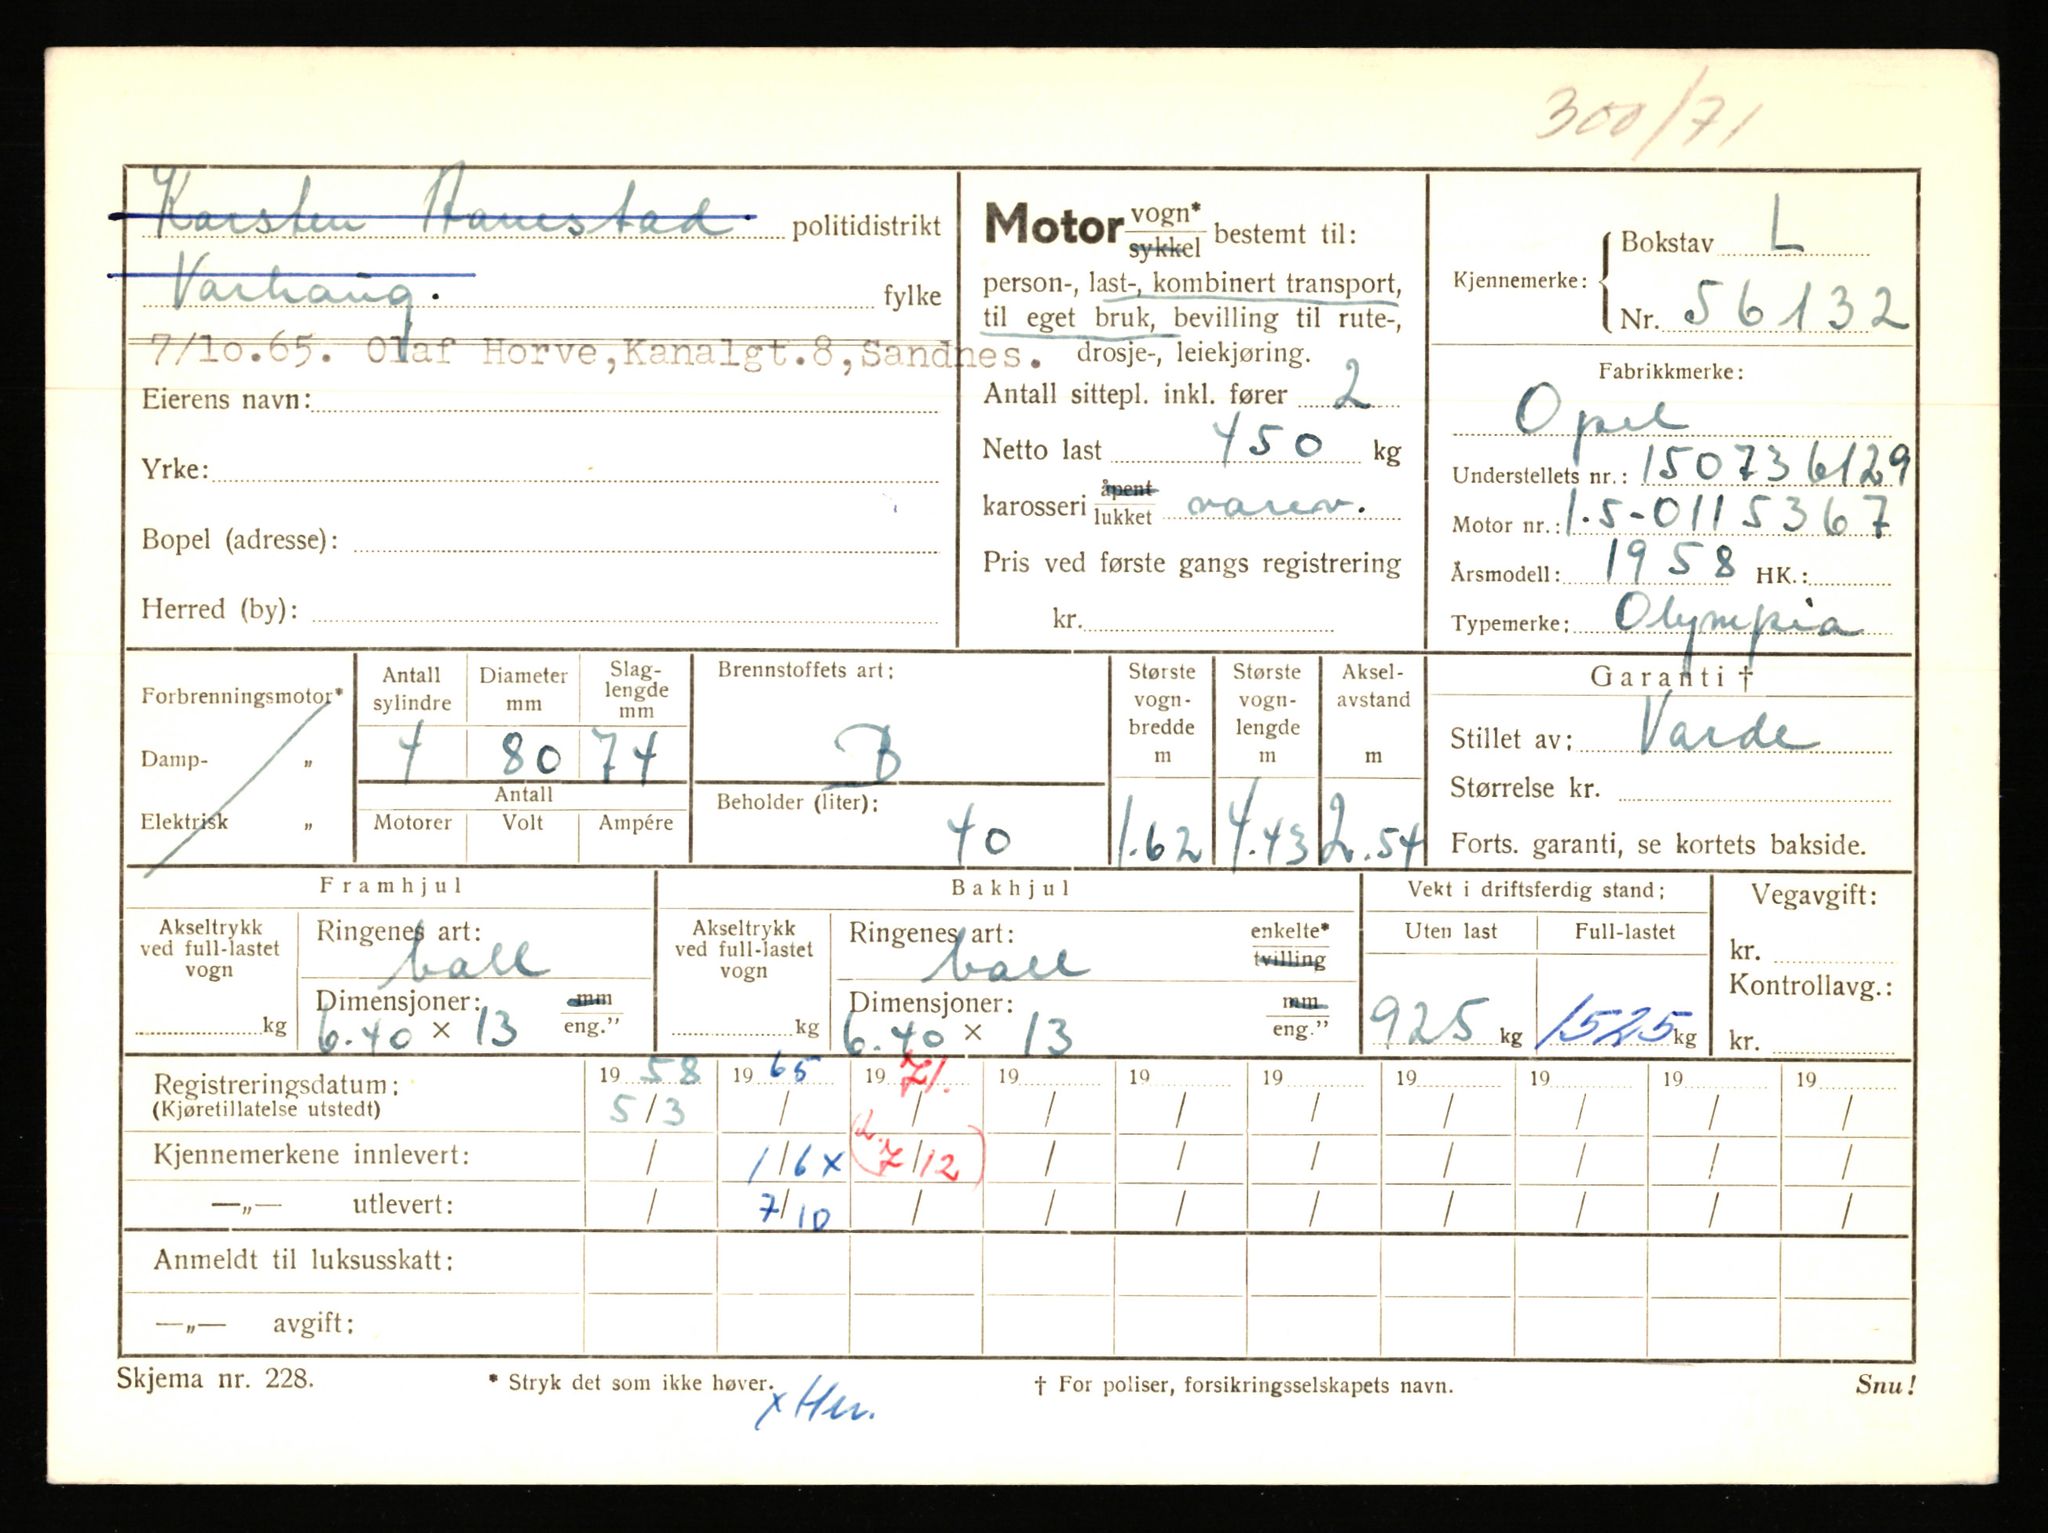 300/71
Karsten Hanestad politidistrikt
Varhaug. fylke
7/10.65. Olaf Horve,Kanalgt.8,Sandnes.
Eierens navn:
Yrke:
Bopel (adresse):
Herred (by):
Motor vogn* sykkel bestemt til:
person-, last-, kombinert transport,
til eget bruk, bevilling til rute-,
drosje-, leiekjøring.
Antall sittepl. inkl. fører 2
Netto last 450 kg
karosseri åpent lukket varev.
Pris ved første gangs registrering
kr.
Kjennemerke: Bokstav L
Nr. 56132
Fabrikkmerke:
Opel
Understellets nr.: 150736129
Motor nr.: 1.5-0115367
Årsmodell: 1958 HK.:
Typemerke: Olympia
Forbrenningsmotor*
Damp- „
Elektrisk „
Antall sylindre 4
Diameter mm 80
Slag-lengde mm 74
Antall
Motorer Volt Ampére
Brennstoffets art: B
Beholder (liter): 40
Største vogn-bredde m 1.62
Største vogn-lengde m 4.43
Aksel-avstand m 2.54
Garanti †
Stillet av: Varde
Størrelse kr.
Forts. garanti, se kortets bakside.
Framhjul
Akseltrykk ved full-lastet vogn kg
Ringenes art: ball
Dimensjoner: mm eng."
6.40 x 13
Bakhjul
Akseltrykk ved full-lastet vogn kg
Ringenes art: ball enkelte* tvilling
Dimensjoner: mm eng."
6.40 x 13
Vekt i driftsferdig stand:
Uten last 925 kg
Full-lastet 1525 kg
Vegavgift:
kr.
Kontrollavg.:
kr.
Registreringsdatum: 1958 1965 1971. 19 19 19 19 19 19 19
(Kjøretillatelse utstedt) 5/3 / / / / / / / / /
Kjennemerkene innlevert: / 1/6x (7/12) / / / / / / /
—„— utlevert: / 7/10 / / / / / / / /
Anmeldt til luksusskatt:
—„— avgift:
Skjema nr. 228. * Stryk det som ikke høver. † For poliser, forsikringsselskapets navn. Snu!